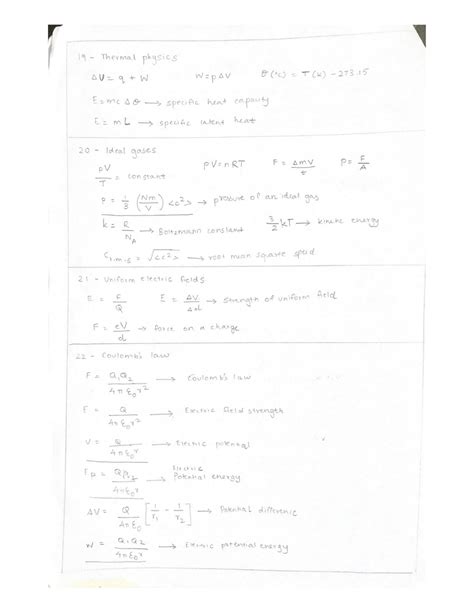 19 - Thermal physics
ΔU = q + W    W = pΔV    θ(°C) = T(K) - 273.15
E = mcΔθ → specific heat capacity
E = mL → specific latent heat
20 - Ideal gases
pV/T = constant    pV = nRT    F = Δmv/t    P = F/A
p = 1/3 (Nm/V) <c²> → pressure of an ideal gas
k = R/N_A → Boltzmann constant    3/2 kT → kinetic energy
C r.m.s = √<c²> → root mean square speed
21 - Uniform electric fields
E = F/Q    E = ΔV/Δd → strength of uniform field
F = eV/d → force on a charge
22 - Coulomb's law
F = Q₁Q₂/4πε₀r² → Coulomb's law
E = Q/4πε₀r² → Electric field strength
V = Q/4πε₀r → Electric potential
Electric
E_p = Q₁Q₂/4πε₀r → Potential energy
ΔV = Q/4πε₀ [1/r₁ - 1/r₂] → Potential difference
W = Q₁Q₂/4πε₀r → Electric potential energy